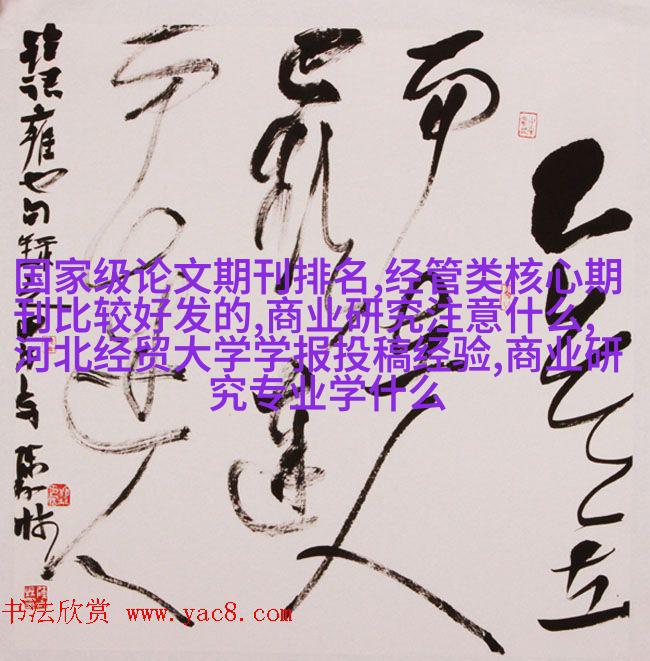 己欲立
而立人
己欲达
而达人
语雍也句
国家级论文期刊排名,经管类核心期
刊比较好发的,商业研究注意什么,
河北经贸大学学报投稿经验,商业研
究专业学什么
书法欣赏 www.yac8.com